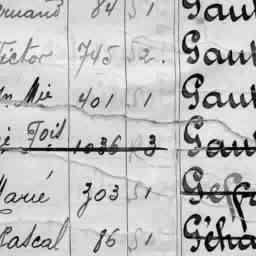 ernand 84 51 Gau
Victor 745 52. Gau
Mie 401 51 Gau
Fois 1036 3 Gau
Marie 303 51 Ge
Pascal 86 51 Géha